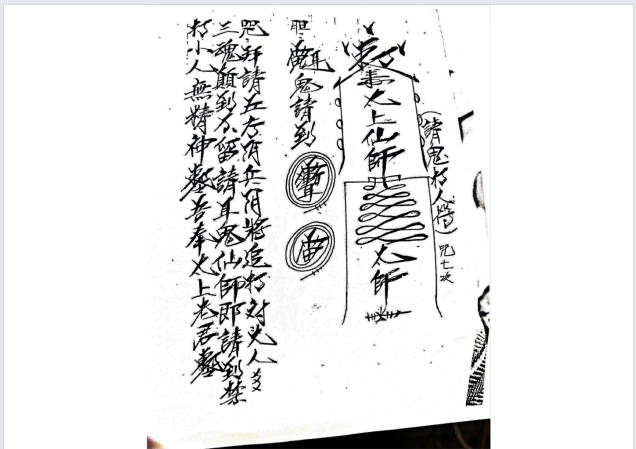 (請鬼打人符)咒七次
太上仙師
太師
胆
耳鬼請到
咒拜請五方阴兵阴將追打对头人
三魂顛到不留請耳鬼仙師即請到禁
打小人無精神吾奉太上老君